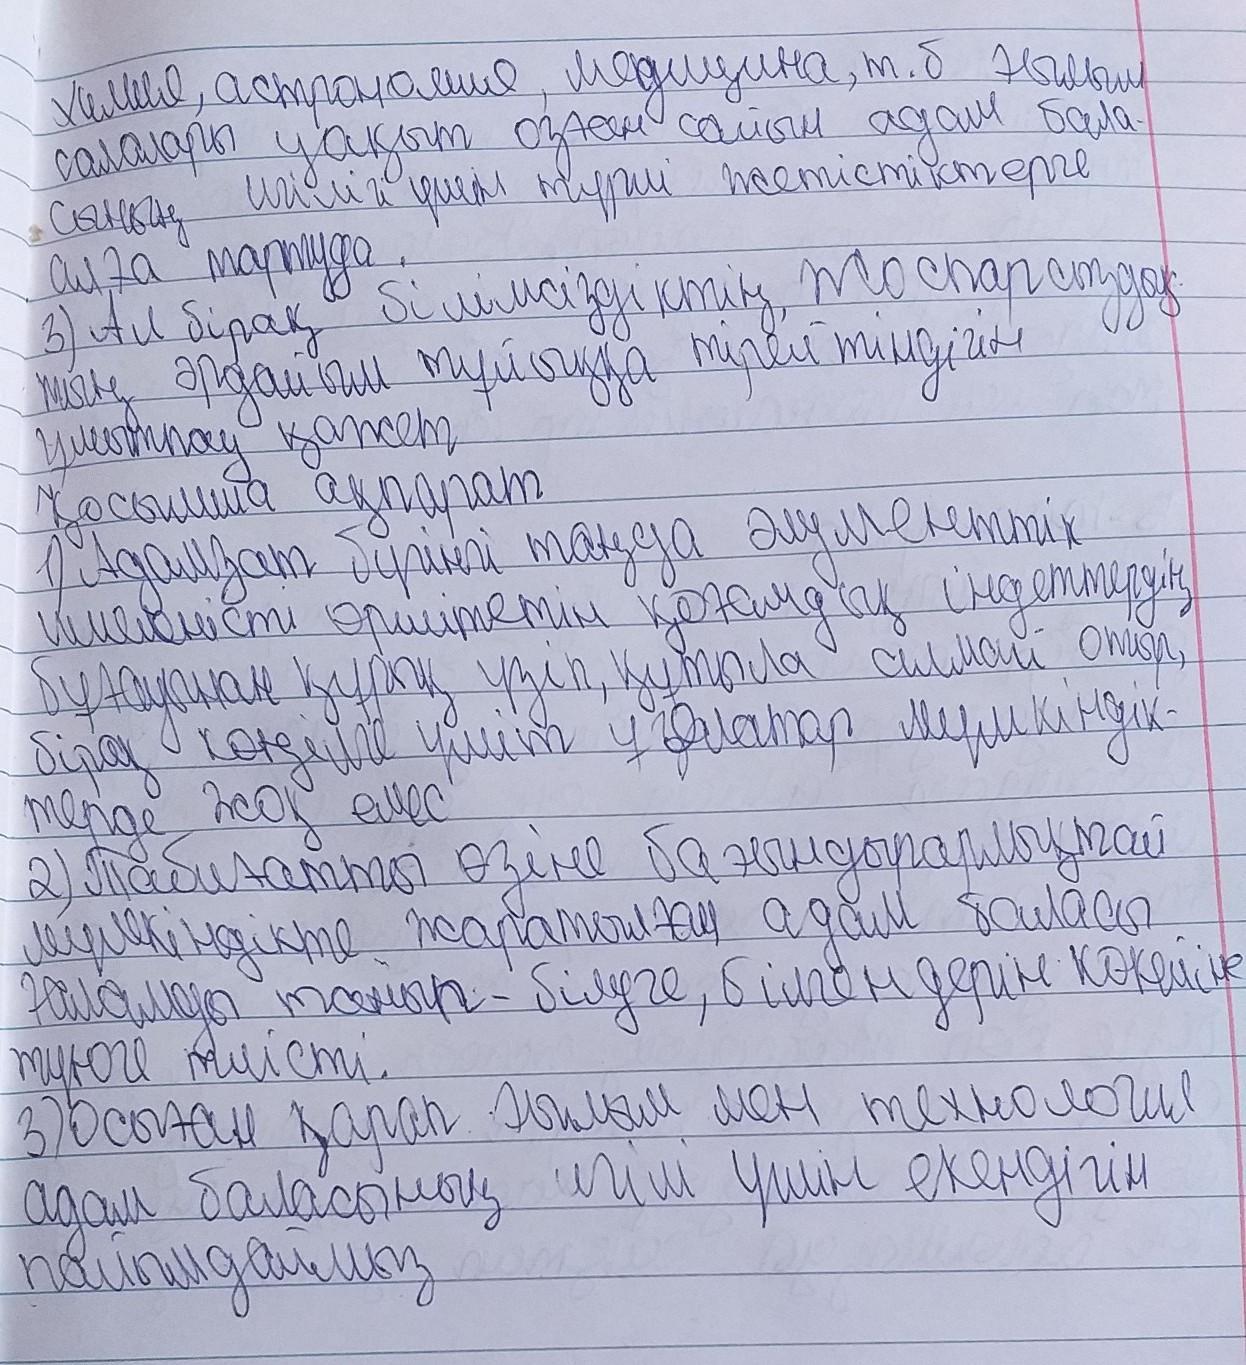 химия, астрономия, медицина, т.б ғылым
салалары уақыт озған сайын адам бала-
сының игілігі үшін түрлі жетістіктерге
алға тартуда.
3) Ал бірақ білімсіздіктің, жоспарсыздық-
тың әрдайым тұйыққа тірейтіндігін
ұмытпау қажет
Қосымша ақпарат
1) Адамзат бүгінгі таңда әлуметтік
шиеленісті өршітетін қоғамдық індеттердің
бұғауынан құрық үзіп, құтыла алмай отыр,
бірақ көңілге үміт ұялатар мүмкіндік-
терде жоқ емес
2) Табиғатты өзіне бағындырарлықтай
мүмкіндікте жаратылған адам баласы
ғаламды танып - білуге, білгендерін көкейіне
түюге тиісті.
3) Осыған қарап ғылым мен технология
адам баласының игілі үшін екендігін
пайымдаймыз